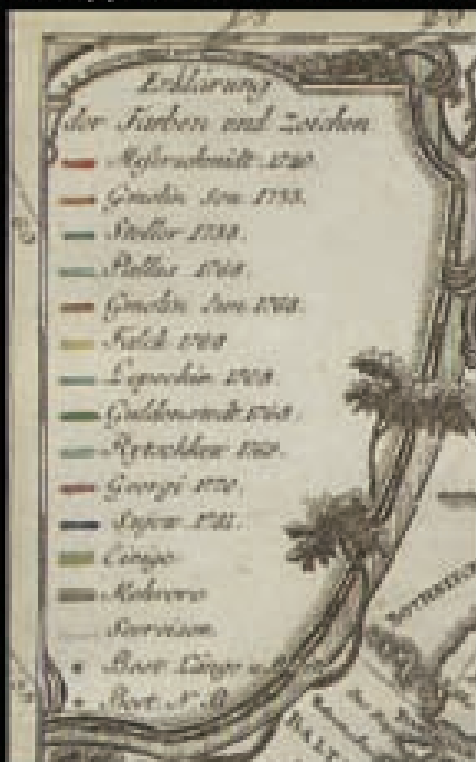 Erklärung
der Farben und Zeichen
Messerschmidt 1720.
Gmelin Sen. 1733.
Steller 1738.
Pallas 1768.
Gmelin Jun. 1768.
Falck 1768
Lepechin 1768.
Güldenstædt 1768.
Rytschkow 1769.
Georgi 1770.
Sujew 1781.
Einige
Mehrere
Seereisen.
Beet. Länge u.
Best. N. B.
BOTHNI
BALT